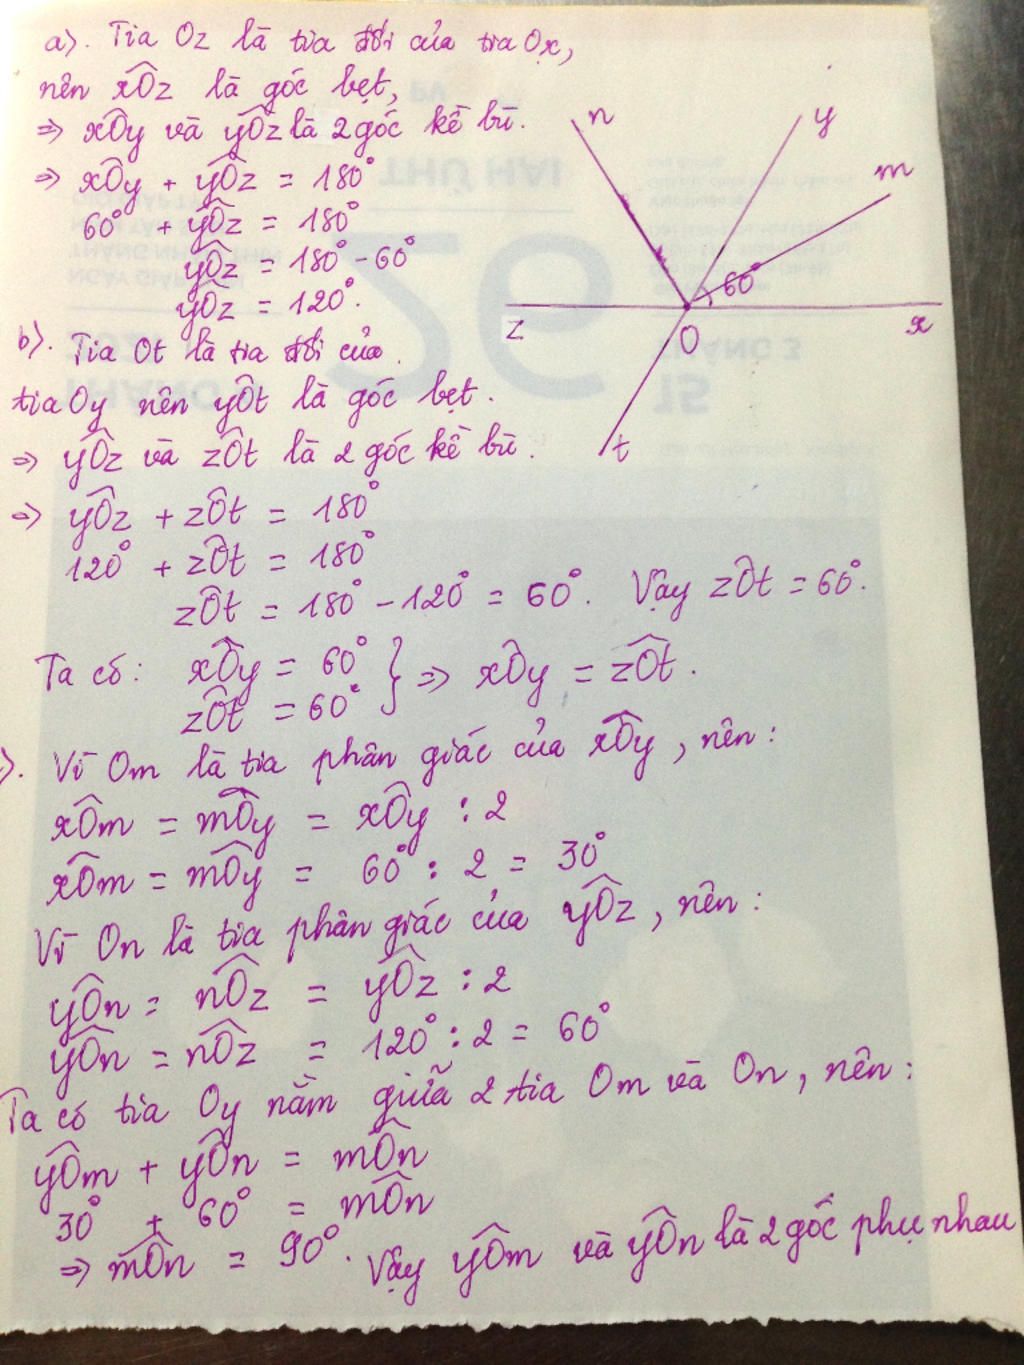 a). Tia Oz là tia đối của tia Ox,
nên xÔz là góc bẹt,
=> xÔy và yÔz là 2 góc kề bù.
=> xÔy + yÔz = 180°
60° + yÔz = 180°
yÔz = 180° - 60°
yÔz = 120°.
n
y
m
60°
z
O
x
t
b). Tia Ot là tia đối của.
tia Oy nên yÔt là góc bẹt.
=> yÔz và zÔt là 2 góc kề bù.
=> yÔz + zÔt = 180°
120° + zÔt = 180°
zÔt = 180° - 120° = 60°. Vậy zÔt = 60°.
Ta có: xÔy = 60°
zÔt = 60° } => xÔy = zÔt.
). Vì Om là tia phân giác của xÔy, nên:
xÔm = mÔy = xÔy : 2
xÔm = mÔy = 60° : 2 = 30°
Vì On là tia phân giác của yÔz, nên:
yÔn = nÔz = yÔz : 2
yÔn = nÔz = 120° : 2 = 60°
Ta có tia Oy nằm giữa 2 tia Om và On, nên:
yÔm + yÔn = mÔn
30° + 60° = mÔn
=> mÔn = 90°. Vậy yÔm và yÔn là 2 góc phụ nhau